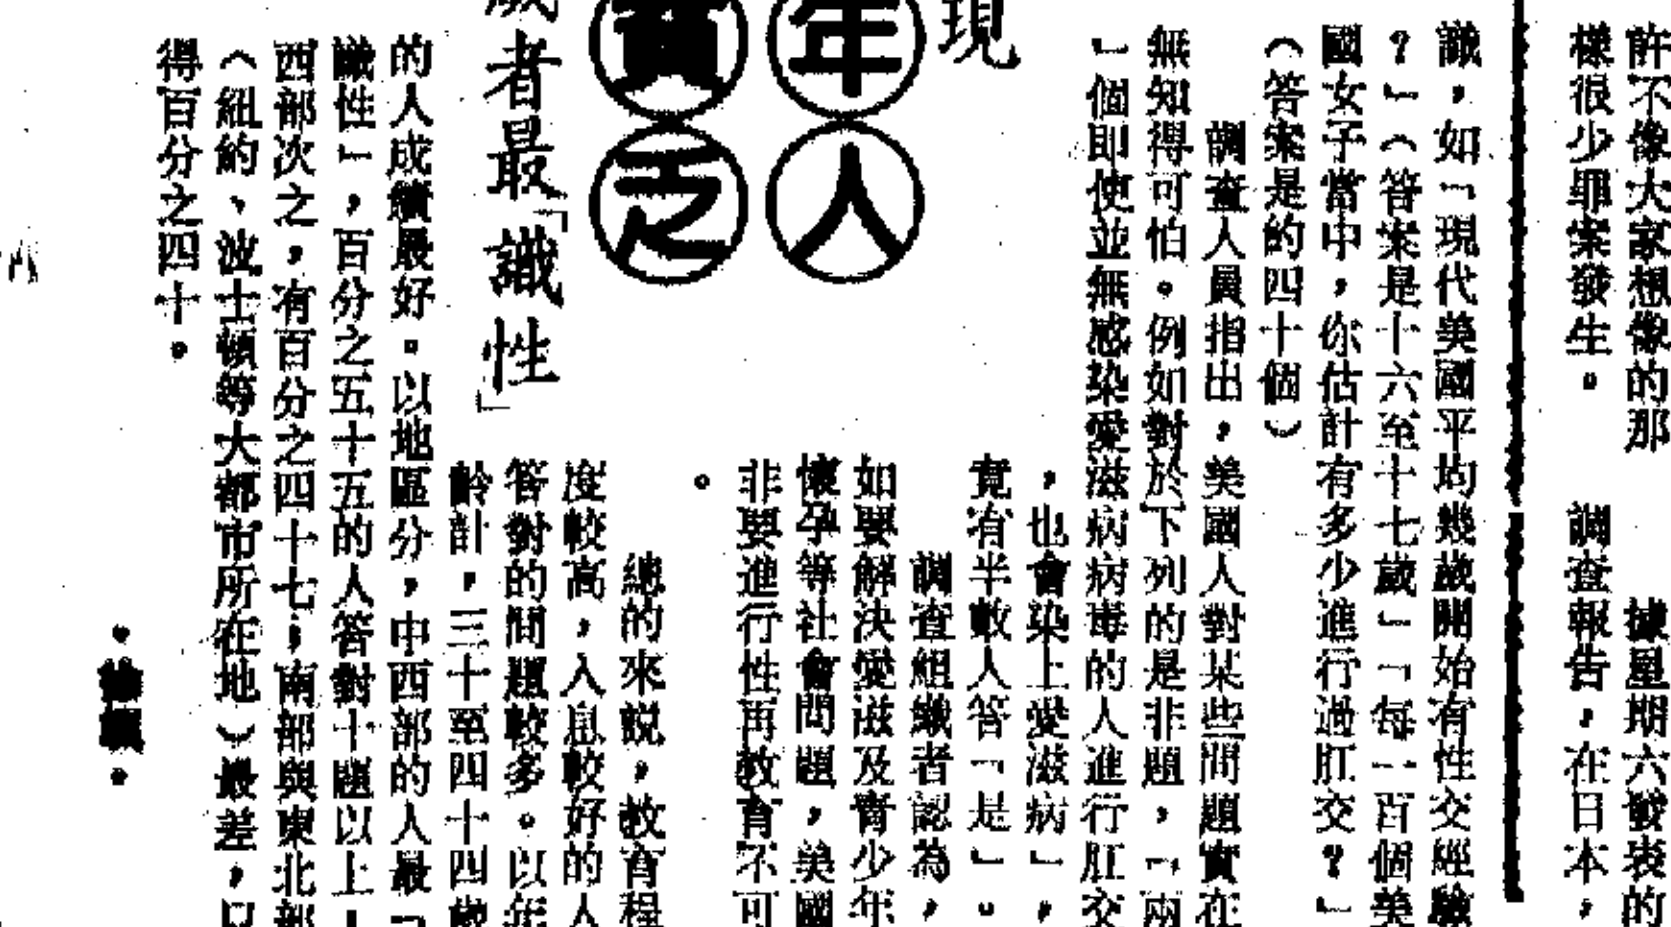 許不像大家想像的那
樣很少罪案發生。
據星期六發表的
調查報告，在日本，
識，如「現代美國平均幾歲開始有性交經驗
？」（答案是十六至十七歲）「每一百個美
國女子當中，你估計有多少進行過肛交？」
（答案是的四十個）
調查人員指出，美國人對某些問題實在
無知得可怕。例如對於下列的是非題，「兩
」個即使並無感染愛滋病病毒的人進行肛交
，也會染上愛滋病」，
竟有半數人答「是」。
調查組織者認為，
如要解決愛滋及青少年
懷孕等社會問題，美國
非要進行性再教育不可
。
現
年人
乏
者最「識性」
總的來說，教育程
度較高，入息較好的人
答對的問題較多。以年
齡計，三十至四十四歲
的人成績最好。以地區分，中西部的人最「
識性」，百分之五十五的人答對十題以上，
西部次之，有百分之四十七；南部與東北部
（紐約、波士頓等大都市所在地）最差，只
得百分之四十。